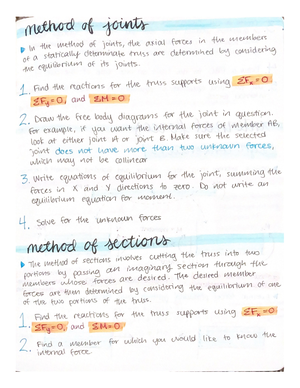 method of joints
▸ In the method of joints, the axial forces in the members
of a statically determinate truss are determined by considering
the equilibrium of its joints.
1. Find the reactions for the truss supports using ΣFx=0,
ΣFy=0, and ΣM=0
2. Draw the free body diagrams for the joint in question.
For example, if you want the internal forces of member AB,
look at either joint A or joint B. Make sure the selected
joint does not have more than two unknown forces,
which may not be collinear
3. Write equations of equilibrium for the joint, summing the
forces in X and Y directions to zero. Do not write an
equilibrium equation for moment.
4. Solve for the unknown forces
method of sections
▸ The method of sections involves cutting the truss into two
portions by passing an imaginary section through the
members whose forces are desired. The desired member
forces are then determined by considering the equilibrium of one
of the two portions of the truss.
1. Find the reactions for the truss supports using ΣFx=0
ΣFy=0, and ΣM=0
2. Find a member for which you would like to know the
internal force